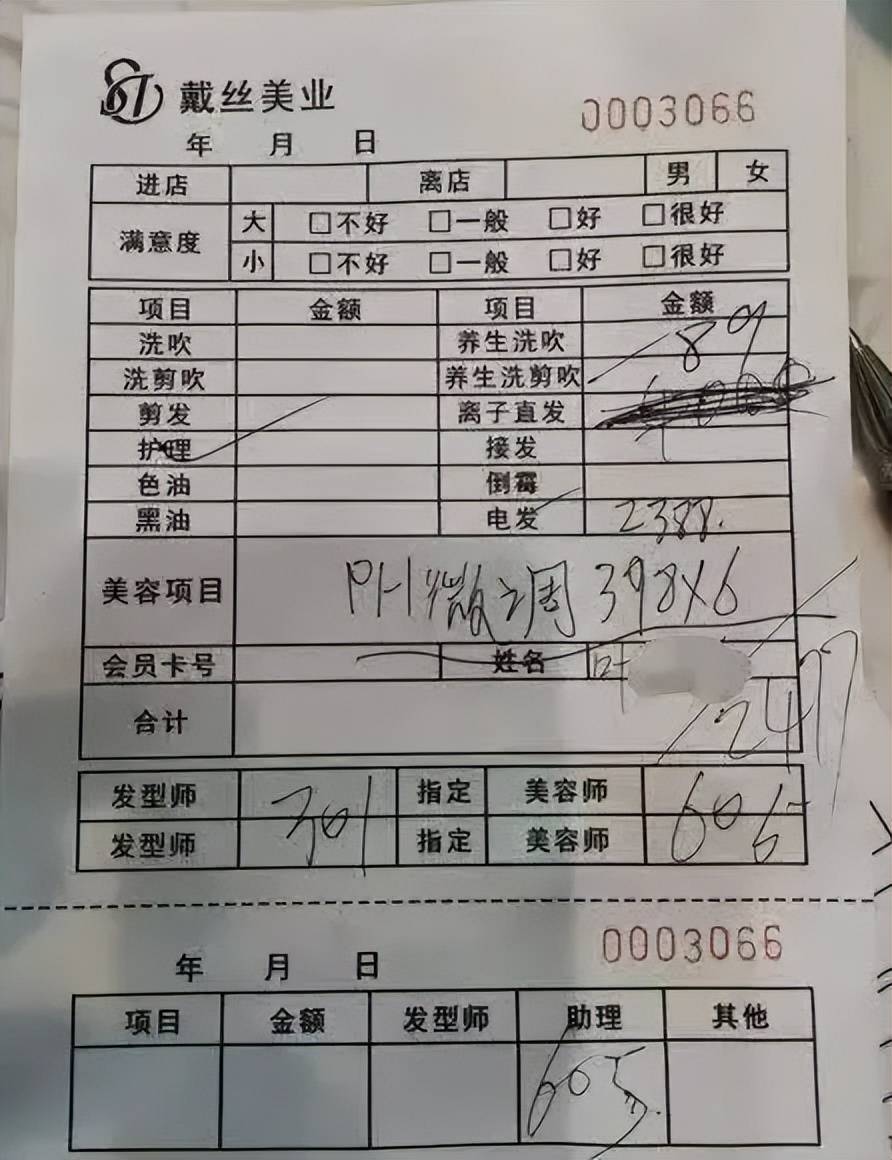 戴丝美业 0003066
年 月 日
进店 离店 男 女
满意度 大 □不好 □一般 □好 □很好
小 □不好 □一般 □好 □很好
项目 金额 项目 金额
洗吹 养生洗吹 89
洗剪吹 养生洗剪吹
剪发 离子直发
护理 接发
色油 倒霉
黑油 电发 2388.
美容项目 PH微调 398×6
会员卡号 姓名 叶
合计 2477
发型师 301 指定 美容师 605
发型师 指定 美容师
0003066
年 月 日
项目 金额 发型师 助理 其他
605